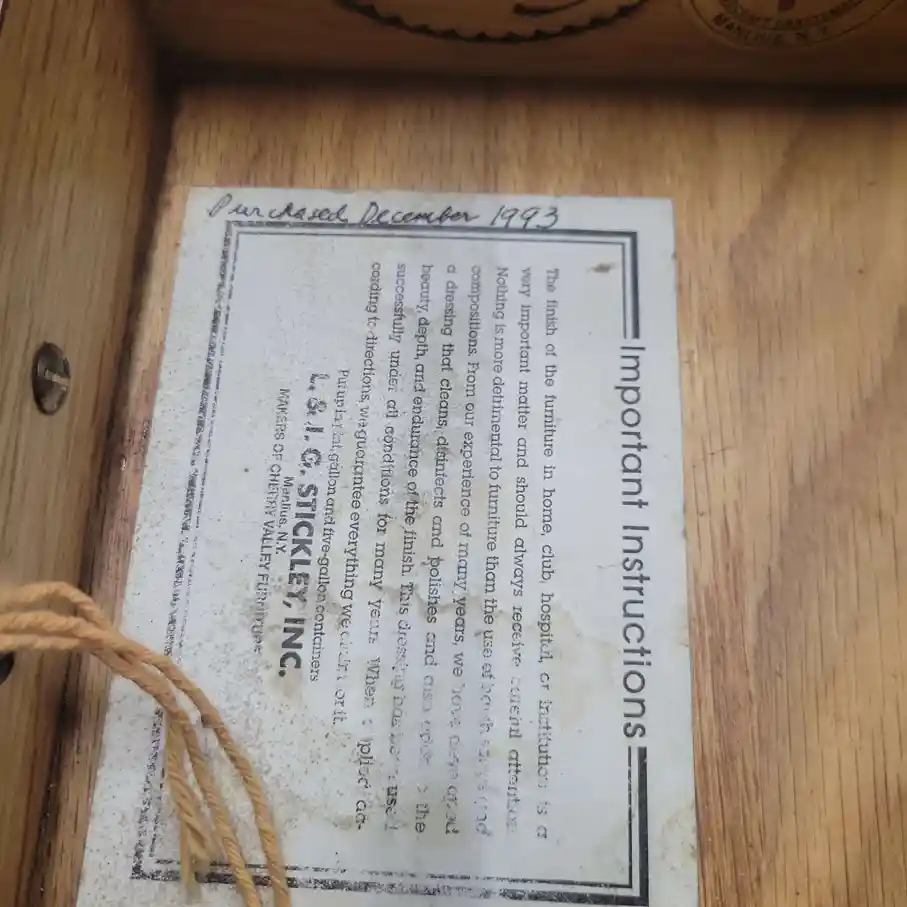 MANLIUS, N.Y.
Purchased December 1993
Important Instructions
The finish of the furniture in home, club, hospital, or institution is a
very important matter and should always receive careful attention.
Nothing is more detrimental to furniture than the use of
compositions. From our experience of many years, we have
a dressing that cleans, disinfects and polishes and the
beauty, depth, and endurance of the finish. This dressing has been used
successfully under all conditions for many years. When applied ac-
cording to directions, we guarantee everything we claim for it.
Put up in pint, gallon and five-gallon containers
L. & J. G. STICKLEY, INC.
Manlius, N.Y.
MAKERS OF CHERRY VALLEY FURNITURE